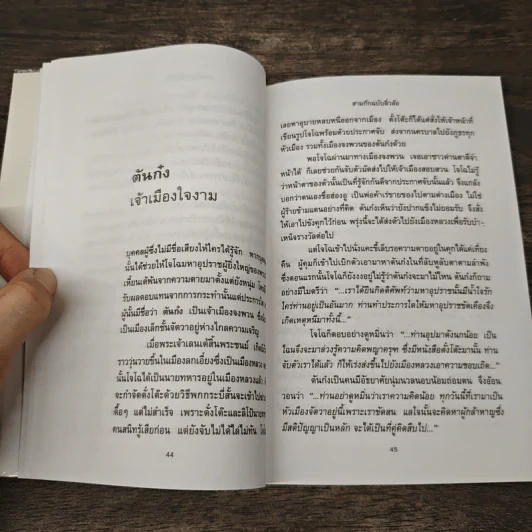 ตันก๋ง
เจ้าเมืองใจงาม
บุคคลผู้ซึ่งไม่มีชื่อเสียงให้ใครได้รู้จัก หาก
นั้นได้ช่วยให้โจโฉมหาอุปราชผู้ยิ่งใหญ่ของ
เหี้ยนเต้พ้นจากความตายมาตั้งแต่ยังหนุ่ม โดย
รับผลตอบแทนจากการกระทำนั้นแต่ประการใด
ผู้นั้นมีชื่อว่า ตันก๋ง เป็นเจ้าเมืองจงพวน ซึ่ง
เป็นเมืองเล็กชั้นจัตวาอยู่ห่างไกลความเจริญ
เมื่อพระเจ้าเลนเต้สิ้นพระชนม์ เกิด
ราววุ่นวายขึ้นในเมืองลกเอี๋ยงซึ่งเป็นเมืองหลวง
นั้นโจโฉได้เป็นนายทหารอยู่ในเมืองหลวงแล้ว
จะกำจัดตั๋งโต๊ะด้วยวิธีพกกระบี่สั้นจะเข้าไป
ดื้อๆ แต่ไม่สำเร็จ เพราะตั๋งโต๊ะและลิโป้นายทหาร
คนสนิทรู้เสียก่อน แต่ยังจับไม่ได้ไล่ไม่ทัน
44
สามก๊กฉบับลิ่วล้อ
เลยหาอุบายหลบหนีออกจากเมือง ตั๋งโต๊ะก็ได้แต่สั่งให้เจ้าหน้าที่
เขียนรูปโจโฉพร้อมด้วยประกาศจับ ส่งจากนครบาลไปยังภูธรทุก
หัวเมือง รวมทั้งเมืองจงพวนของตันก๋งด้วย
พอโจโฉผ่านมาทางเมืองจงพวน เจอเอาชาวด่านตาดีจำ
หน้าได้ ก็เลยช่วยกันจับตัวมัดส่งไปให้เจ้าเมืองสอบสวน โจโฉไม่รู้
ว่าหน้าตาของตัวนั้นเป็นที่รู้จักกันดีจากประกาศจับนั้นแล้ว จึงแกล้ง
บอกว่าตนเองชื่อฮ่องฮู เป็นพ่อค้าเร่ขายของไปตามต่างเมือง ไม่ใช่
ผู้ร้ายข้ามแดนอย่างที่คิด ตันก๋งเห็นว่ายังปากแข็งไม่ยอมรับ จึงสั่ง
ให้เอาไปขังคุกไว้ก่อน พรุ่งนี้จะได้ส่งตัวไปยังเมืองหลวงเพื่อรับบำ-
เหน็จรางวัลต่อไป
แต่โจโฉเข้าไปนั่งแคะขี้เล็บรอความตายอยู่ในคุกได้แค่เที่ยง
คืน ผู้คุมก็เข้าไปเบิกตัวเอามาหาตันก๋งในที่ลับหูลับตาตามลำพัง
ซึ่งตอนแรกนั้นโจโฉก็ยังงงอยู่ไม่รู้ว่าตันก๋งจะมาไม้ไหน ตันก๋งก็ถาม
อย่างมีไมตรีว่า “...เราได้ยินกิตติศัพท์ว่ามหาอุปราชนั้นมีน้ำใจรัก
ใคร่ท่านอยู่เป็นอันมาก ท่านทำประการใดให้มหาอุปราชขัดเคืองจึง
เกิดเหตุหนีมาทั้งนี้...”
โจโฉก็ตอบอย่างดูหมิ่นว่า “...ท่านอุปมาดังนกน้อย เป็น
ไฉนจึงจะมาล่วงรู้ความคิดพญาครุฑ ซึ่งมีหนังสือตั๋งโต๊ะมานั้น ท่าน
จับตัวเราได้แล้ว ก็ให้เร่งส่งขึ้นไปยังเมืองหลวงเอาความชอบเถิด...”
ตันก๋งเป็นคนมีอัธยาศัยนุ่มนวลนอบน้อมถ่อมตน จึงอ้อน
วอนว่า “...ท่านอย่าดูหมิ่นว่าเราความคิดน้อย ทุกวันนี้ที่เรามาเป็น
หัวเมืองจัตวาอยู่นี้เพราะเราขัดสน แลใจนั้นจะคิดหาผู้กล้าหาญซึ่ง
มีสติปัญญาเป็นหลัก จะได้เป็นที่คู่คิดสืบไป...”
45